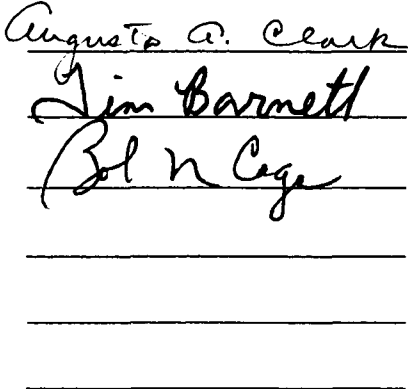 Augusta A. Clark
Jim Barnett
Bob N Cage